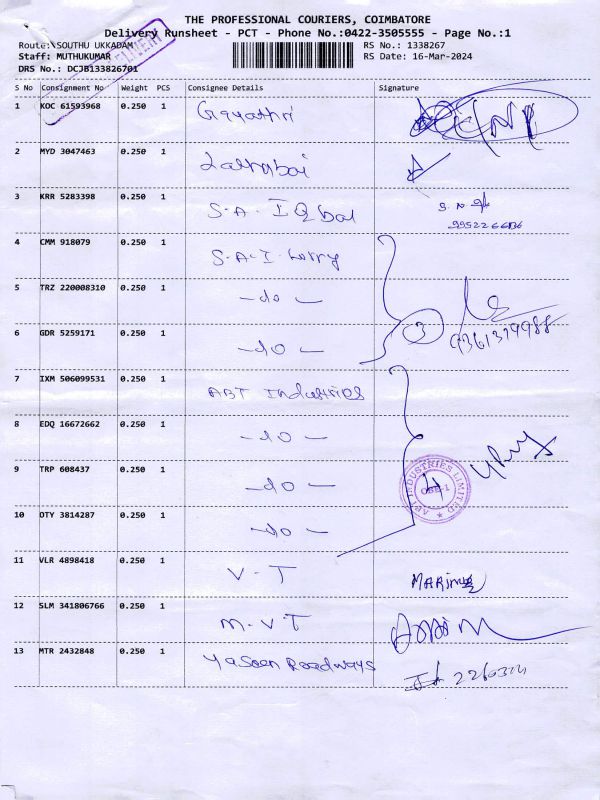 THE PROFESSIONAL COURIERS, COIMBATORE
Delivery Runsheet - PCT - Phone No.:0422-3505555 - Page No.:1
Route:\SOUTHU UKKADAM
RS No.: 1338267
Staff: MUTHUKUMAR
RS Date: 16-Mar-2024
DRS No.: DCJB133826701
S No Consignment No Weight PCS Consignee Details Signature
1 KOC 61593968 0.250 1 Gayathri
2 MYD 3047463 0.250 1
3 KRR 5283398 0.250 1 S.A. IQbal
4 CMM 918079 0.250 1 S.A.I. Lorry
5 TRZ 220008310 0.250 1 -do-
3
9361379988
6 GDR 5259171 0.250 1 -do-
7 IXM 506099531 0.250 1 ABT Industries
8 EDQ 16672662 0.250 1 -do-
9 TRP 608437 0.250 1 -do-
4
ABT INDUSTRIES LIMITED
10 OTY 3814287 0.250 1 -do-
11 VLR 4898418 0.250 1 V-T
12 SLM 341806766 0.250 1 M.V.T
13 MTR 2432848 0.250 1 Yaseen Roadways